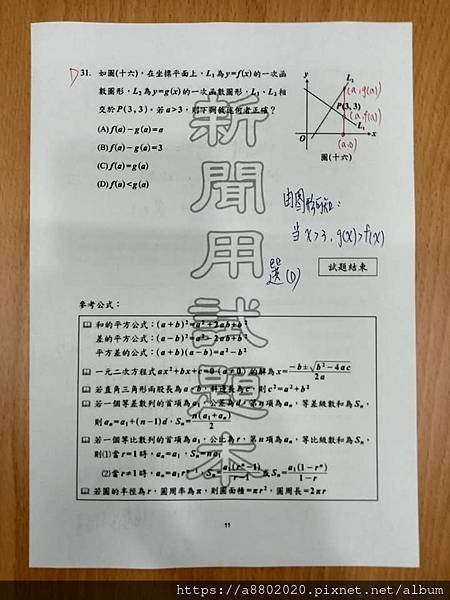 D 31. 如圖(十六),在坐標平面上,L₁為y=f(x)的一次函
數圖形,L₂為y=g(x)的一次函數圖形,L₁、L₂相
交於P(3, 3),若a>3,則下列敘述何者正確?
(A) f(a)-g(a)=a
(B) f(a)-g(a)=3
(C) f(a)=g(a)
(D) f(a)<g(a)
y
L₂
(a, g(a))
P(3, 3)
(a, f(a))
L₁
O
x
(a, 0)
圖(十六)
由圖形可知:
當 x>3, g(x)>f(x)
選(D)
試題結束
新聞用試題本
參考公式:
和的平方公式:(a+b)²=a²+2ab+b²
差的平方公式:(a-b)²=a²-2ab+b²
平方差的公式:(a+b)(a-b)=a²-b²
一元二次方程式ax²+bx+c=0 (a≠0) 的解為x=(-b±√(b²-4ac))/2a
若直角三角形兩股長為a、b,斜邊長為c,則c²=a²+b²
若一個等差數列的首項為a₁,公差為d,第n項為aₙ,等差級數和為Sₙ,
則aₙ=a₁+(n-1)d,Sₙ=n(a₁+aₙ)/2
若一個等比數列的首項為a₁,公比為r,第n項為aₙ,等比級數和為Sₙ,
則(1)當r=1時,aₙ=a₁,Sₙ=na₁
(2)當r≠1時,aₙ=a₁rⁿ⁻¹,Sₙ=a₁(rⁿ-1)/(r-1)或Sₙ=a₁(1-rⁿ)/(1-r)
若圓的半徑為r,圓周率為π,則圓面積=πr²,圓周長=2πr
11
https://a8802020.pixnet.net/album